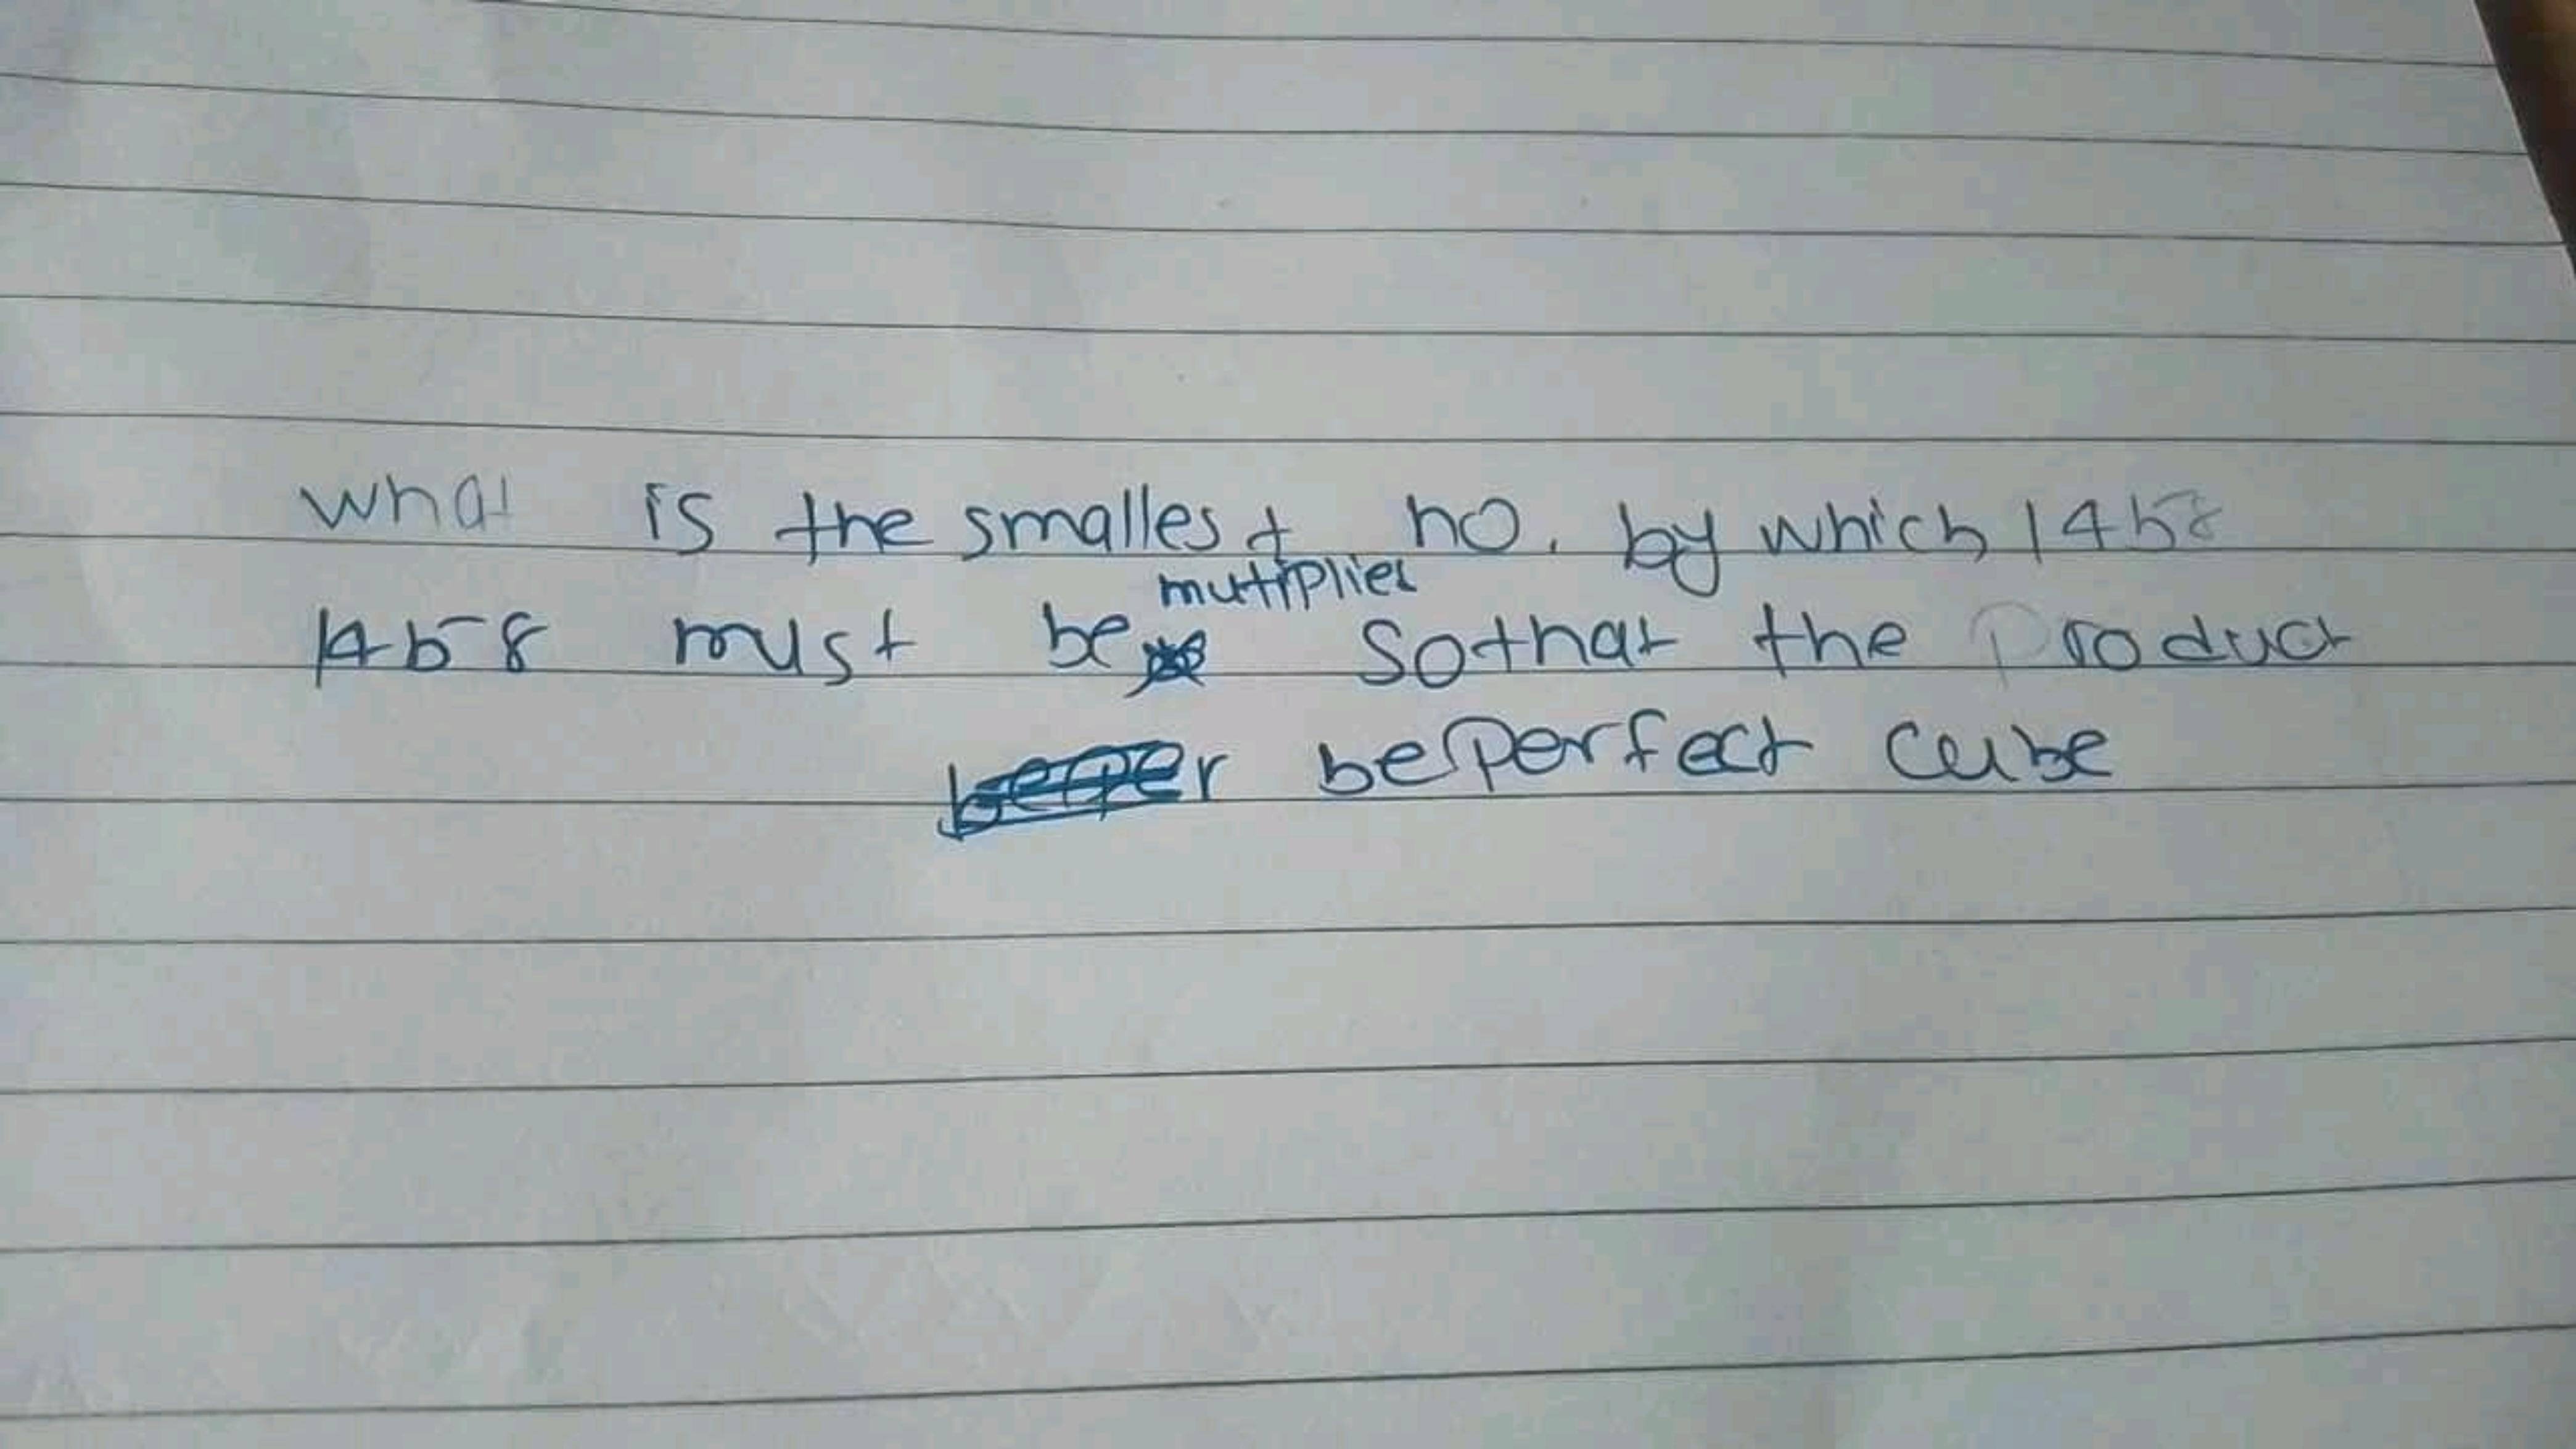 What is the smallest no. by which 1458
mutiplied
1458 must be so that the Product
beper be perfect cube